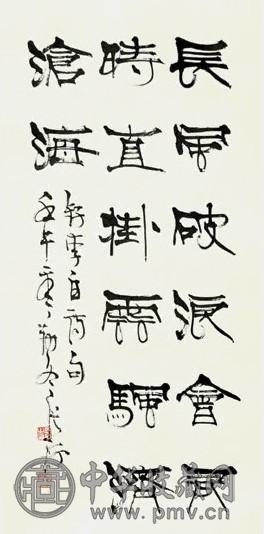 長風破浪會有
時直掛雲颿濟
滄海
李白詩句
壬午
中华收藏网
www.pmv.cn